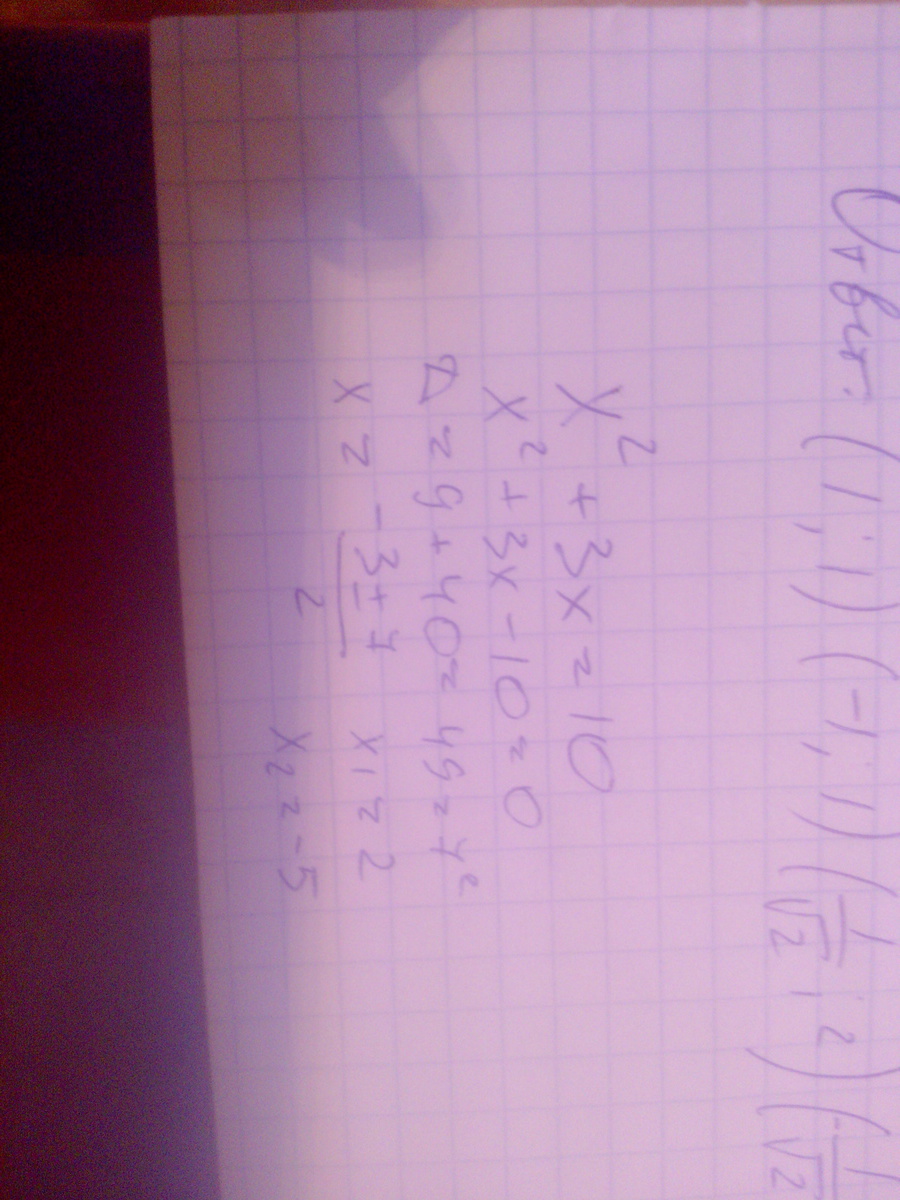 Ответ: (1; 1) (-1; 1) (1/√2; 2) (-1/√2
x² + 3x = 10
x² + 3x - 10 = 0
D = 9 + 40 = 49 = 7²
x = (-3 ± 7)/2 x1 = 2
x2 = -5